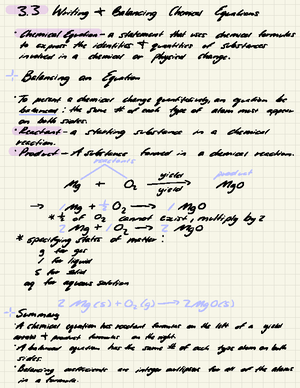 3.3 Writing & Balancing Chemical Equations
• Chemical Equation - a statement that uses chemical formulas
to express the identities & quantities of substances
involved in a chemical or physical change.
Balancing an Equation
• To present a chemical change quantitatively, an equation must be
balanced: the same # of each type of atom must appear
on both sides.
• Reactant - a starting substance in a chemical
reaction.
• Product - A substance formed in a chemical reaction.
reactants product
Mg + O₂ yield yield MgO
→ 1 Mg + ½ O₂ → 1 MgO
* ½ of O₂ cannot exist, multiply by 2
2 Mg + 1 O₂ → 2 MgO
* specifying states of matter:
g for gas
l for liquid
s for solid
aq for aqueous solution
2 Mg(s) + O₂(g) → 2 MgO(s)
Summary
• A chemical equation has reactant formulas on the left of a yield
arrow & product formulas on the right.
• A balanced equation has the same # of each type atom on both
sides.
• Balancing coefficients are integer multiples for all of the atoms
in a formula.